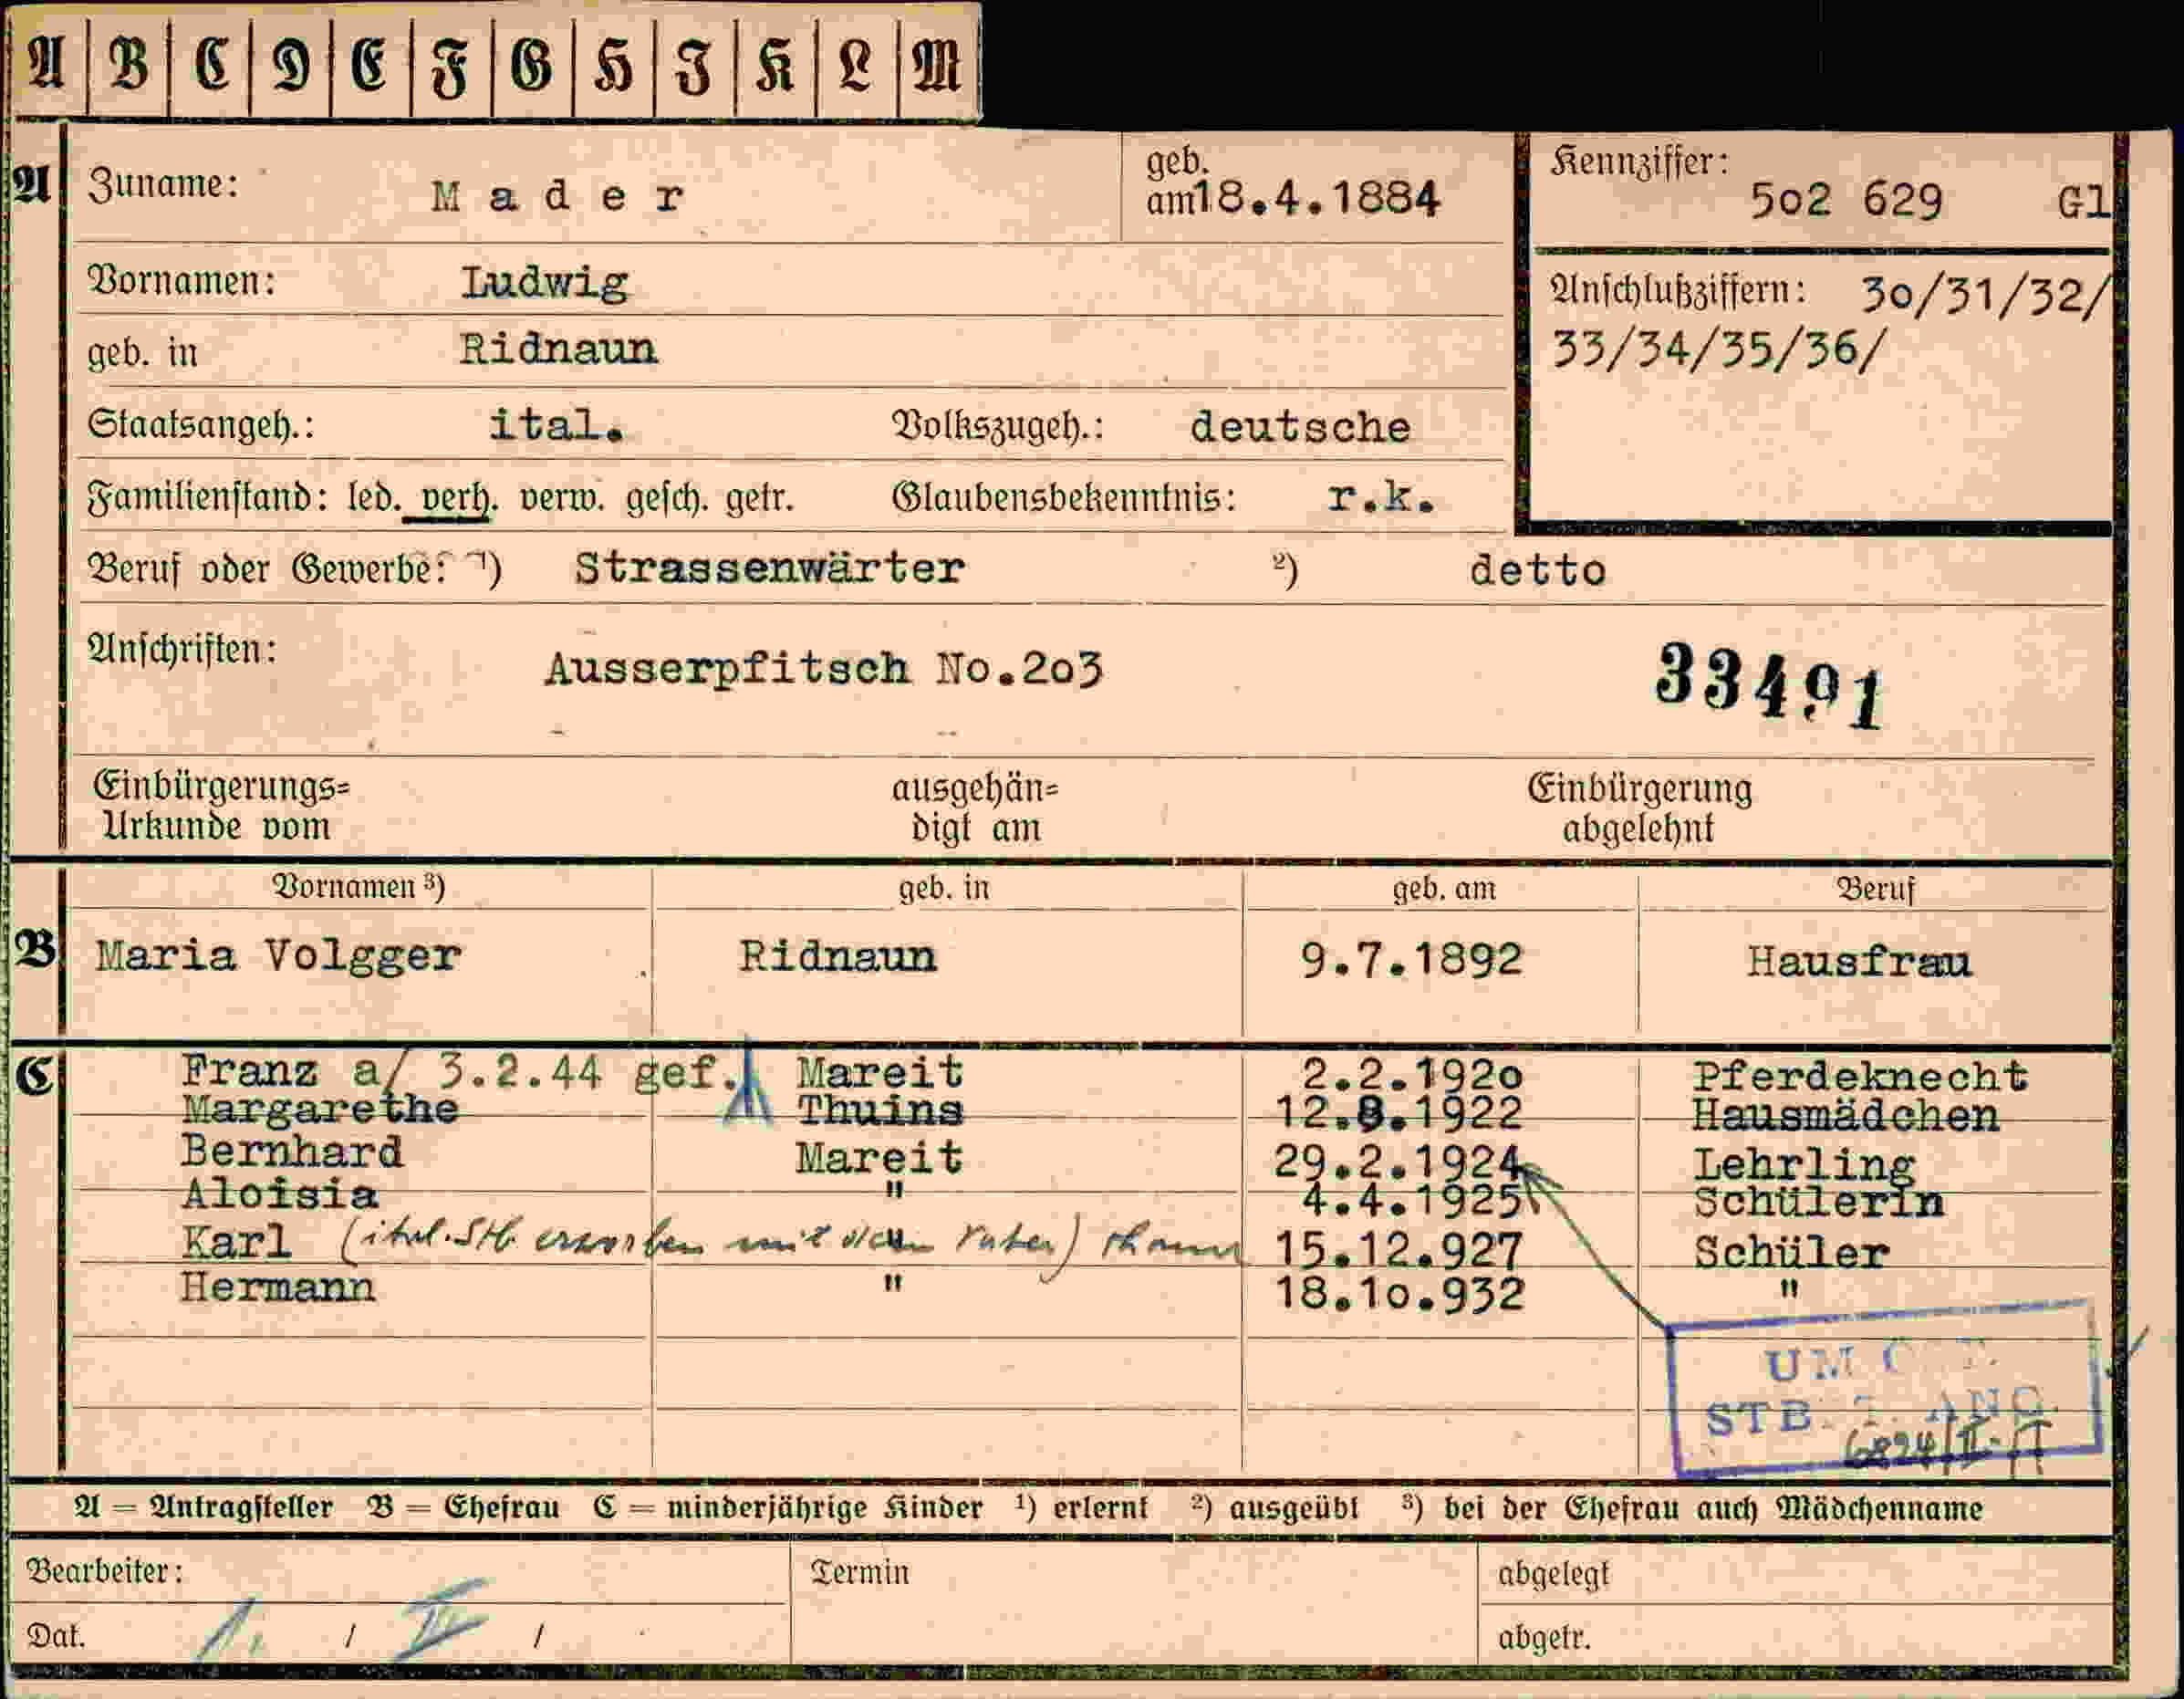 A B C D E F G H I K L M
A Zuname: Mader geb. am 18.4.1884 Kennziffer: 502 629 Gl
Vornamen: Ludwig
Anschlußziffern: 30/31/32/
33/34/35/36/
geb. in Ridnaun
Staatsangeh.: ital. Volkszugeh.: deutsche
Familienstand: led. verh. verw. gesch. getr. Glaubensbekenntnis: r.k.
Beruf oder Gewerbe: ¹) Strassenwärter ²) detto
Anschriften: Ausserpfitsch No.2o3 33491
Einbürgerungs= ausgehän= Einbürgerung
Urkunde vom digt am abgelehnt
Vornamen ³) geb. in geb. am Beruf
B Maria Volgger Ridnaun 9.7.1892 Hausfrau
C Franz a/ 3.2.44 gef. Mareit 2.2.192o Pferdeknecht
Margarethe Thuins 12.8.1922 Hausmädchen
Bernhard Mareit 29.2.1924 Lehrling
Aloisia " 4.4.1925 Schülerin
Karl (ital. Stb. erworben mit dem Vater) 15.12.927 Schüler
Hermann " 18.1o.932 "
STB
6824/II-
A = Antragsteller B = Ehefrau C = minderjährige Kinder ¹) erlernt ²) ausgeübt ³) bei der Ehefrau auch Mädchenname
Bearbeiter: Termin abgelegt
Dat. 1. / / abgetr.